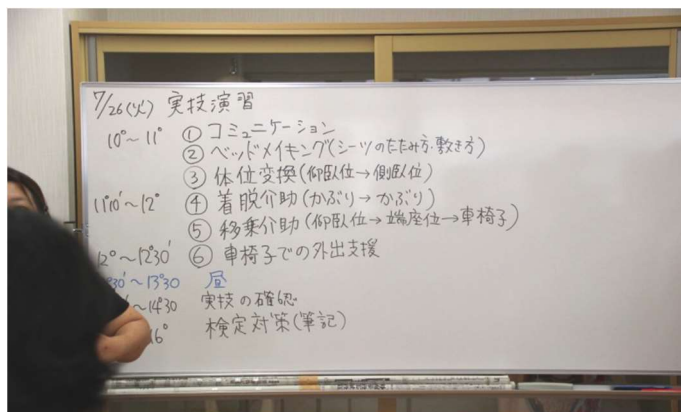 7/26(火) 実技演習
10°～11° ① コミュニケーション
② ベッドメイキング(シーツのたたみ方・敷き方)
③ 体位変換(仰臥位→側臥位)
11°10'～12° ④ 着脱介助(かぶり→かぶり)
⑤ 移乗介助(仰臥位→端座位→車椅子)
12°～12°30' ⑥ 車椅子での外出支援
30'～13°30 昼
～14°30 実技の確認
16° 検定対策(筆記)